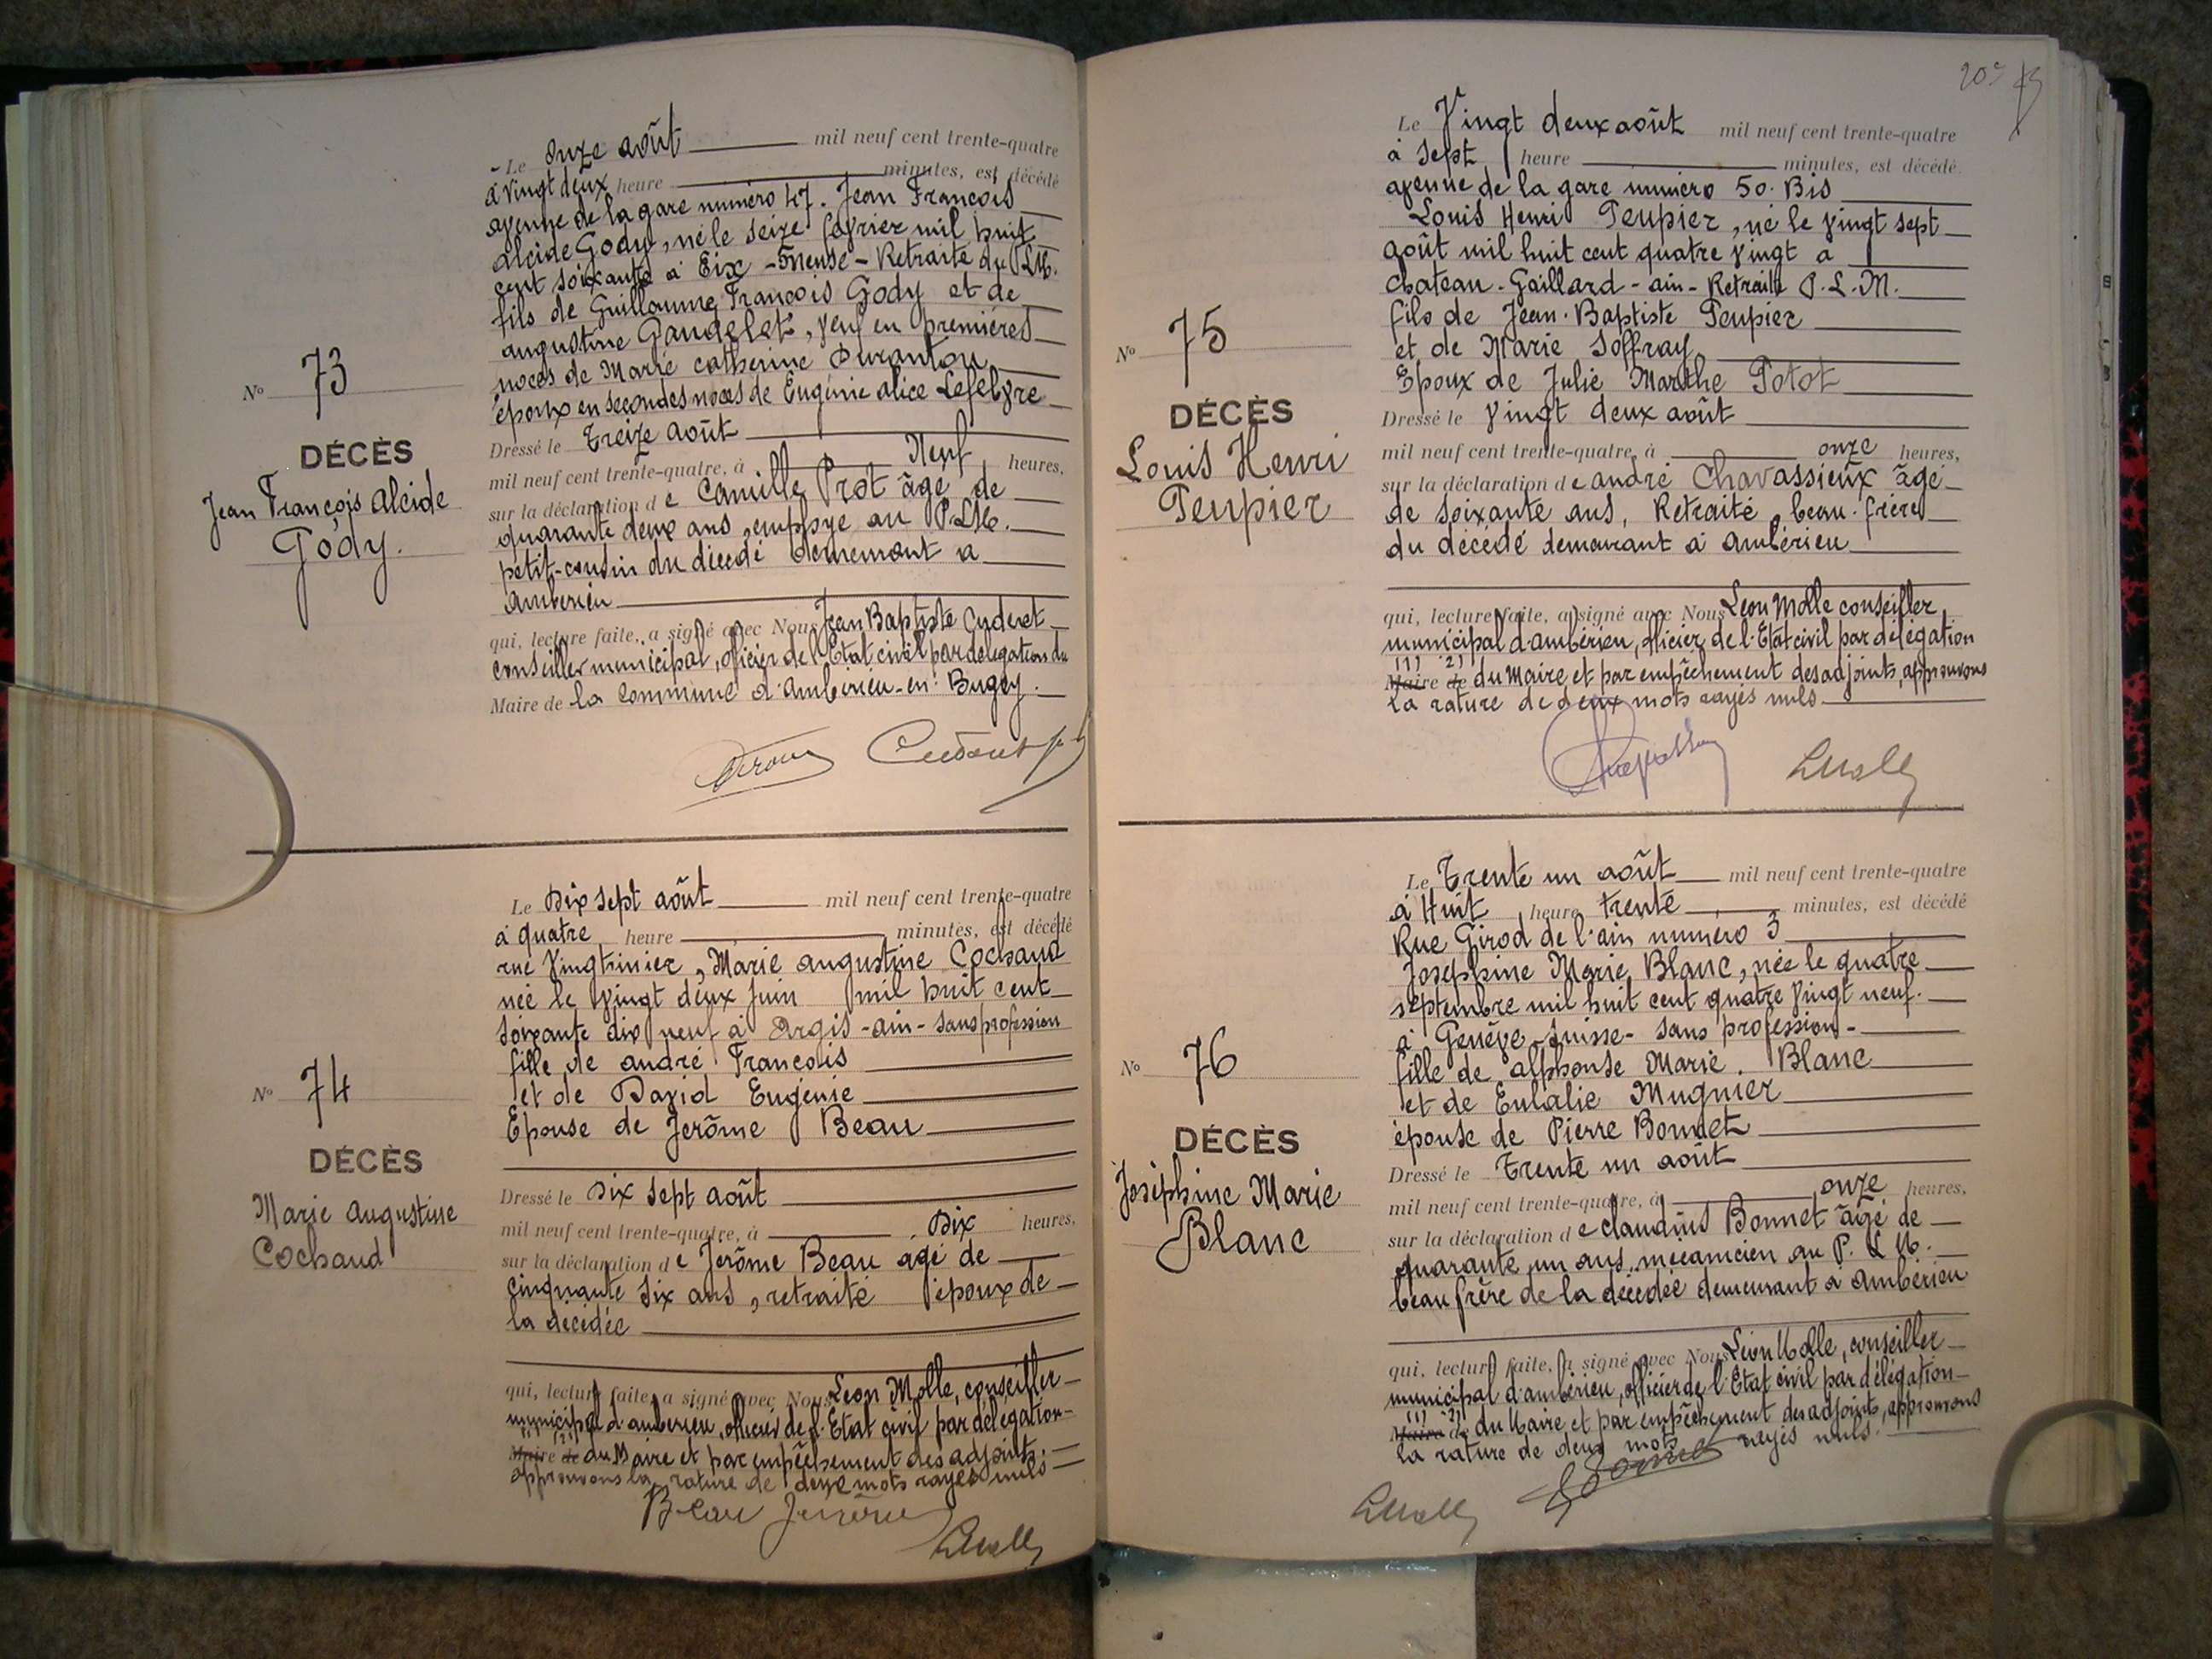 N° 73
DÉCÈS
Jean François Alcide
Gody.
Le onze août mil neuf cent trente-quatre
à vingt deux heure minutes, est décédé
avenue de la gare numéro 47. Jean François
Alcide Gody, né le seize février mil huit
cent soixante à Eix - Meuse - Retraité du P.L.M.
fils de Guillaume François Gody et de
augustine Gaudelet, veuf en premières
noces de Marie Catherine Duranton
époux en secondes noces de Eugénie Alice Lefebvre
Dressé le Treize août
mil neuf cent trente-quatre, à Neuf heures,
sur la déclaration de Camille Prot âgé de
quarante deux ans, employé au P.L.M.
petit-cousin du décédé demeurant à
Ambérieu
qui, lecture faite, a signé avec Nous Jean Baptiste
conseiller municipal, officier de l'Etat civil par délégation du
Maire de la Commune d'Ambérieu-en-Bugey.
N° 74
DÉCÈS
Marie Augustine
Cochaud
Le Dix sept août mil neuf cent trente-quatre
à quatre heure minutes, est décédé
rue Vingtrinier, Marie augustine Cochaud
née le vingt deux juin mil huit cent
soixante dix neuf à Argis - ain - sans profession
fille de andré François
et de David Eugénie
Epouse de Jerôme Beau
Dressé le Dix sept août
mil neuf cent trente-quatre, à Dix heures,
sur la déclaration de Jerôme Beau agé de
cinquante six ans, retraité époux de
la décédée
qui, lecture faite, a signé avec Nous Leon Molle, conseiller
municipal d'ambérieu, officier de l'Etat civil par délégation
(1) (2)
Maire de du Maire et par empêchement des adjoints.
approuvons la rature de deux mots rayés nuls
Beau Jerôme
LMolle
209
N° 75
DÉCÈS
Louis Henri
Peupier
Le Vingt deux août mil neuf cent trente-quatre
à Sept heure minutes, est décédé
avenue de la gare numéro 50. Bis
Louis Henri Peupier, né le vingt sept
août mil huit cent quatre vingt à
Chateau-Gaillard - ain - Retraité P.L.M.
fils de Jean-Baptiste Peupier
et de Marie Joffray
Epoux de Julie Marthe Potot
Dressé le vingt deux août
mil neuf cent trente-quatre, à onze heures,
sur la déclaration de andré Chavassieux âgé
de soixante ans, Retraité, beau-frère
du décédé demeurant à Ambérieu
qui, lecture faite, a signé avec Nous Léon Molle conseiller
municipal d'ambérieu, officier de l'Etat civil par délégation
(1) (2)
Maire de du Maire et par empêchement des adjoints, approuvons
la rature de deux mots rayés nuls
LMolle
N° 76
DÉCÈS
Joséphine Marie
Blanc
Le Trente un août mil neuf cent trente-quatre
à Huit heure trente minutes, est décédé
Rue Girod de l'ain numéro 3
Joséphine Marie Blanc, née le quatre
septembre mil huit cent quatre vingt neuf.
à Genève - Suisse - sans profession -
fille de alphonse Marie Blanc
et de Eulalie Mugnier
épouse de Pierre Bonnet
Dressé le Trente un août
mil neuf cent trente-quatre, à onze heures,
sur la déclaration de claudius Bonnet âgé de
quarante un ans, mécanicien au P.L.M.
beau frère de la décédée demeurant à Ambérieu
qui, lecture faite, a signé avec Nous Léon Molle, conseiller
municipal d'ambérieu, officier de l'Etat civil par délégation
(1) (2)
Maire de du Maire et par empêchement des adjoints, approuvons
la rature de deux mots rayés nuls.
Bonnet
LMolle